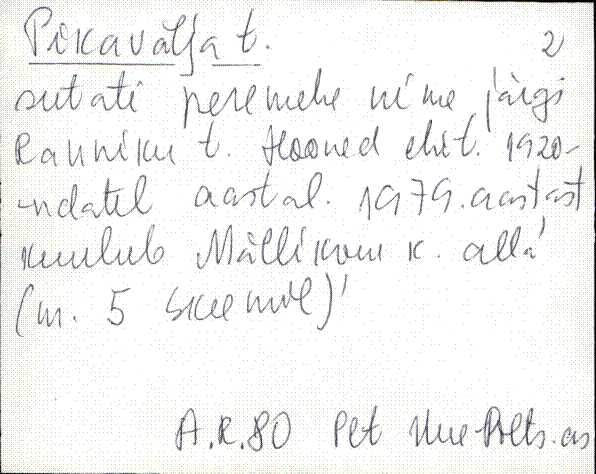 Pikavälja t. 2
sutati peremehe nime järgi
Ranniku t. Hooned ehit. 1920-
-ndatel aastal. 1979. aastast
kuulub Mällikvere k. alla
(nr. 5 skeemil)
A.R.80 Plt Uue-Põlts. as